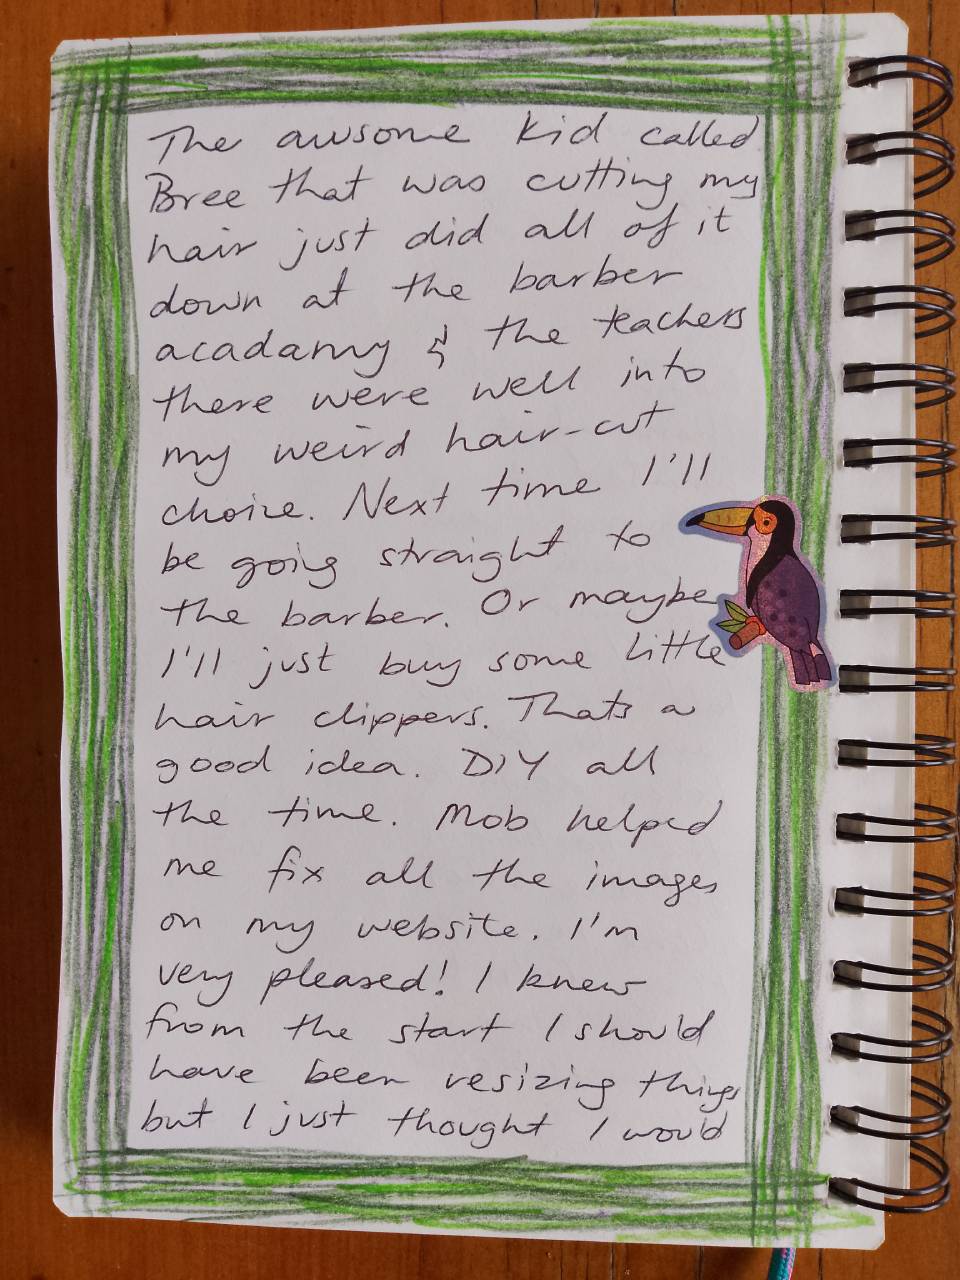 The awsome kid called
Bree that was cutting my
hair just did all of it
down at the barber
acadamy & the teachers
there were well into
my weird hair-cut
choice. Next time I'll
be going straight to
the barber. Or maybe
I'll just buy some little
hair clippers. Thats a
good idea. DIY all
the time. Mob helped
me fix all the images
on my website. I'm
very pleased! I knew
from the start I should
have been resizing things
but I just thought I would